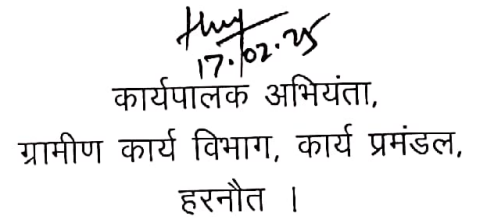 17.02.25
कार्यपालक अभियंता,
ग्रामीण कार्य विभाग, कार्य प्रमंडल,
हरनौत ।